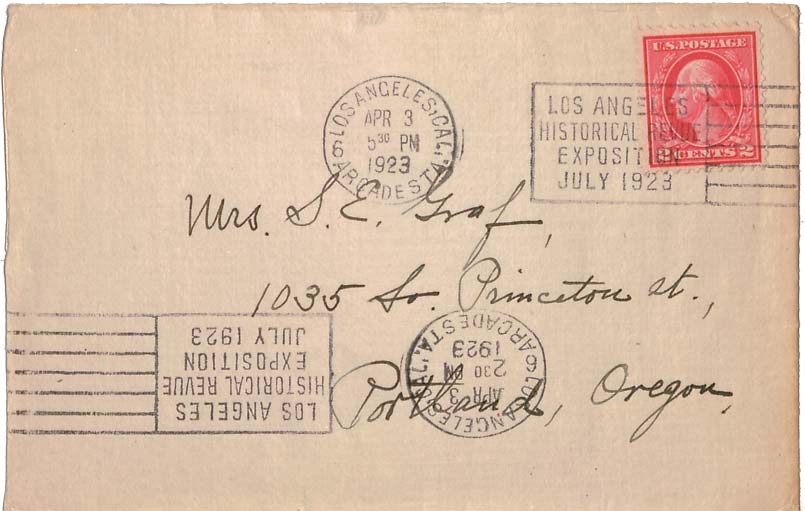 U.S. POSTAGE
2 CENTS 2
LOS ANGELES, CAL.
APR 3
5 30 PM
1923
6 ARCADE STA. 6
LOS ANGELES
HISTORICAL REVUE
EXPOSITION
JULY 1923
Mrs. S. E. Graf,
1035 So. Princeton st.,
Portland, Oregon.
LOS ANGELES, CAL.
APR 3
2 30 PM
1923
6 ARCADE STA.
LOS ANGELES
HISTORICAL REVUE
EXPOSITION
JULY 1923